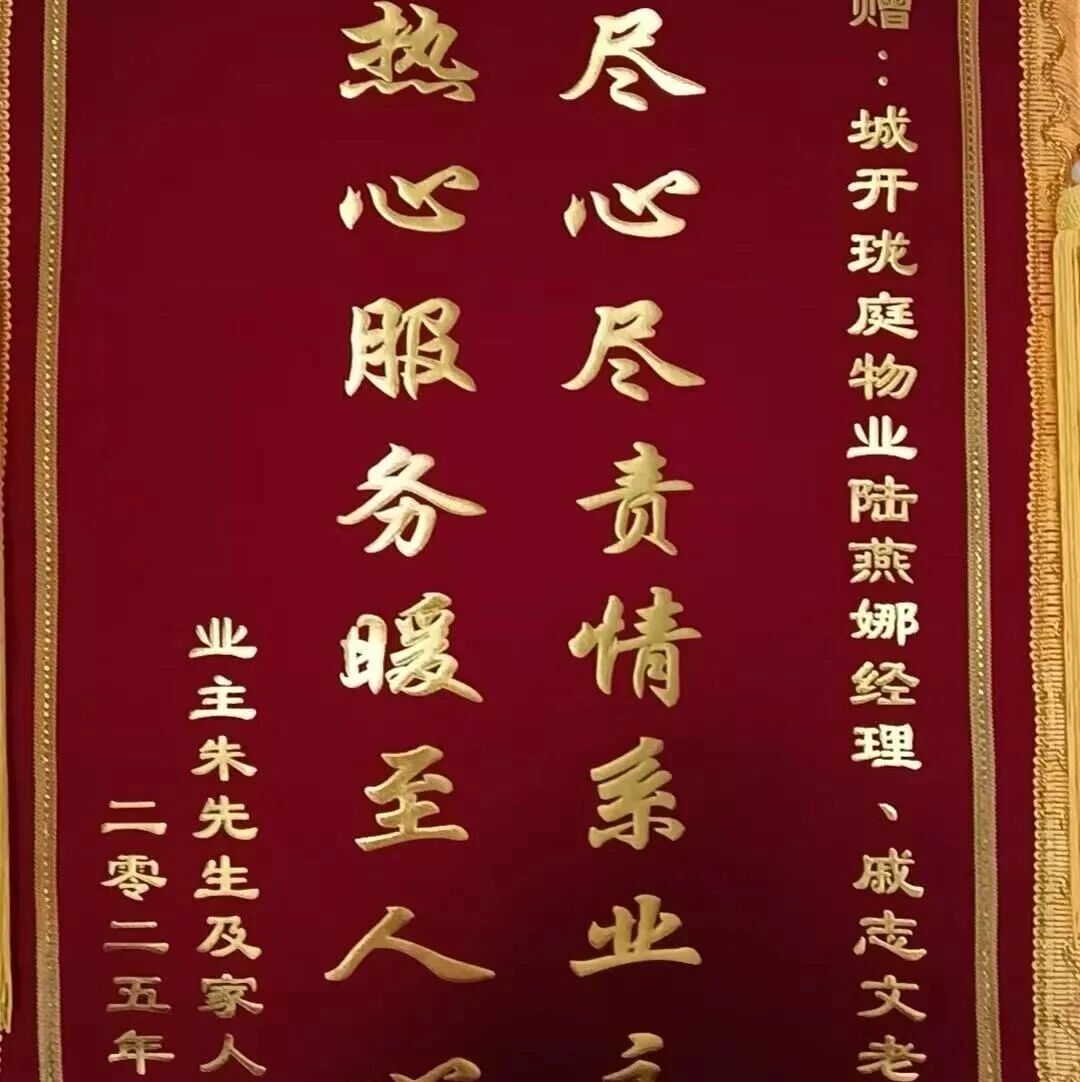 赠：城开珑庭物业陆燕娜经理、戚志文老
尽心尽责情系业主
热心服务暖至人
业主朱先生及家人
二零二五年